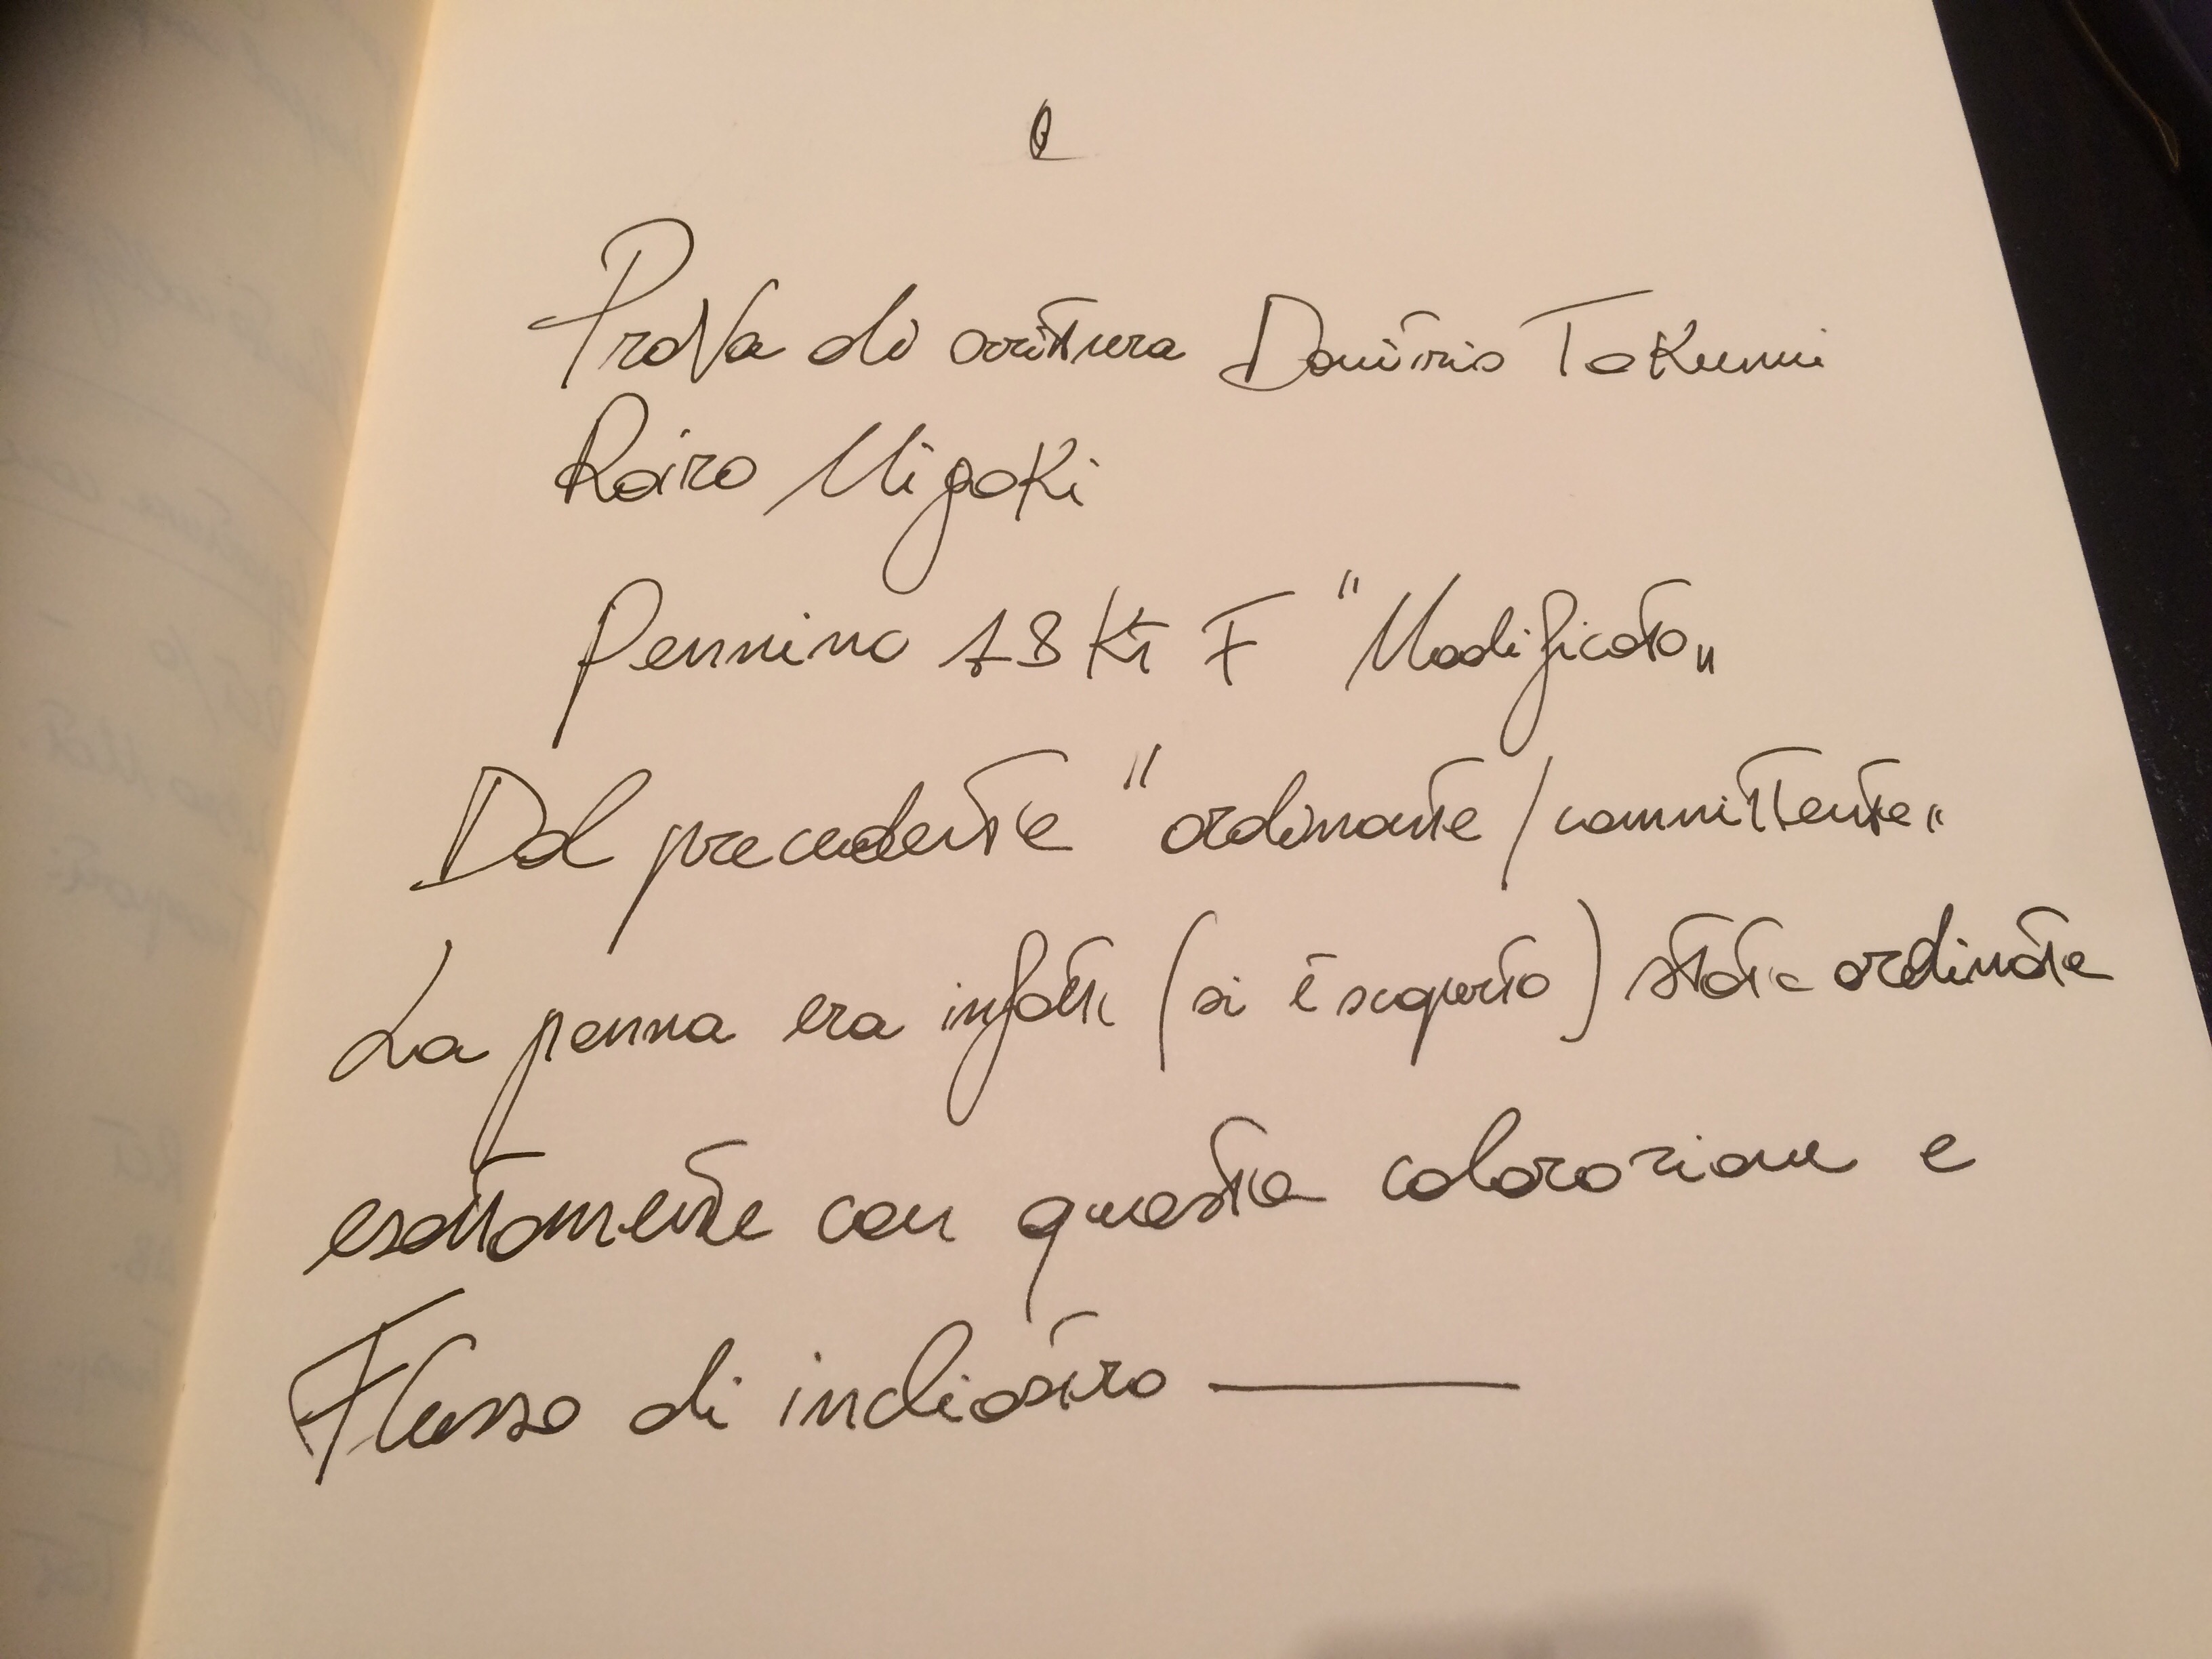 Prova di scrittura Danitrio Takumi
Rairo Migaki
Pennino 18 Kt F "Modificato"
Dal precedente "ordinante / committente"
La penna era infatti (si è scoperto) stata ordinata
esattamente con questa colorazione e
Flusso di inchiostro